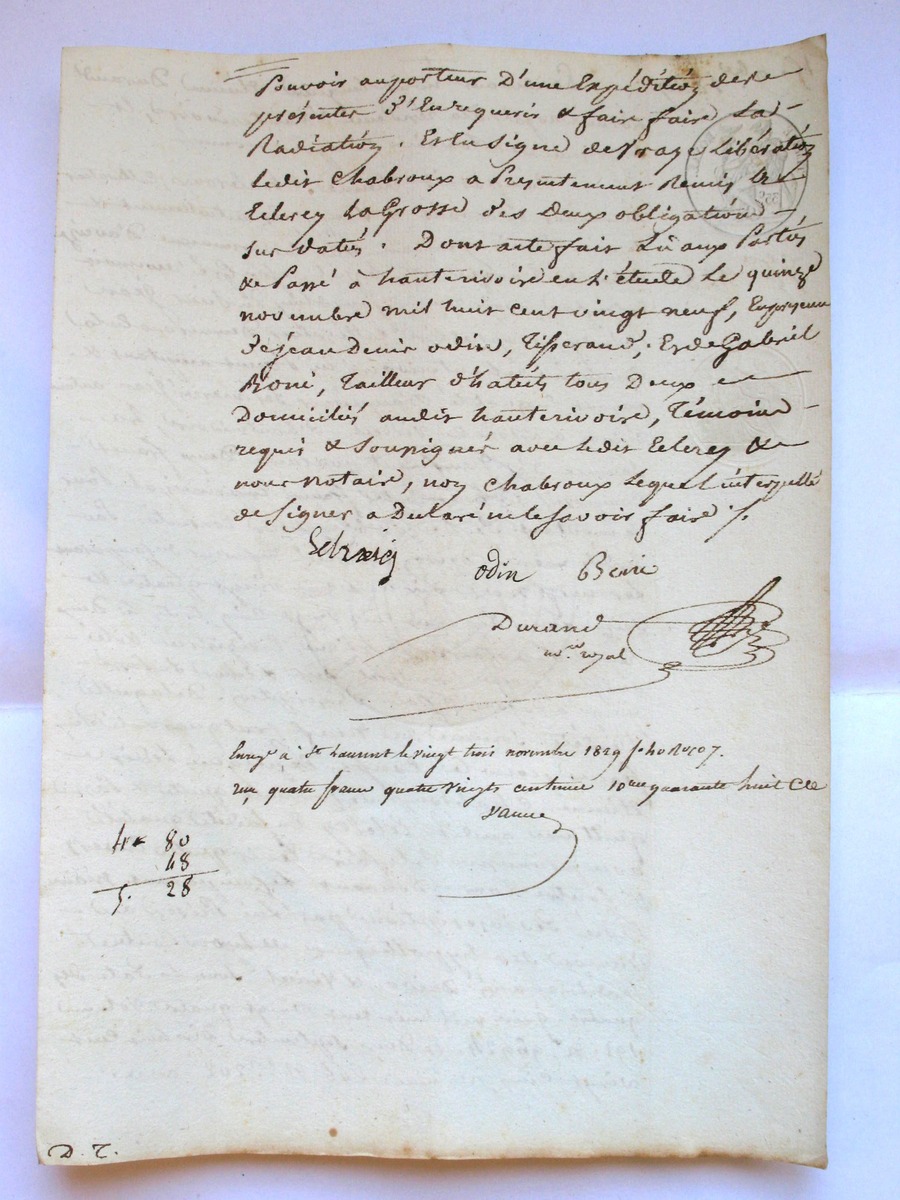 Pouvoir au porteur D'une Expédition des
présentes d'En requerir & faire faire La
Radiation. En signe de vraye Libération
Ledit Chabroux a Présentement Remis
La Grosse des Deux obligations
Sus Datés. Dont acte fait Lû aux Parties
& Passé à hauterivoire en L'étude Le quinze
novembre mil huit cent vingt neuf, En présence
De jean Denis odin, Tisserand, Et de Gabriel
Tailleur d'habits tous Deux
Domiciliés audit hauterivoire, Témoins
requis & Soussignés avec Ledit &
nous notaire, non Chabroux Lequel interpellé
de Signer a Déclaré ne le Savoir faire /.
odin
Durand
no.re royal
Enreg.é à St Laurent le vingt trois novembre 1829 f.o 40
reçu quatre francs quatre vingts centimes 10eme quarante huit C
4 80
48
5. 28
D. T.